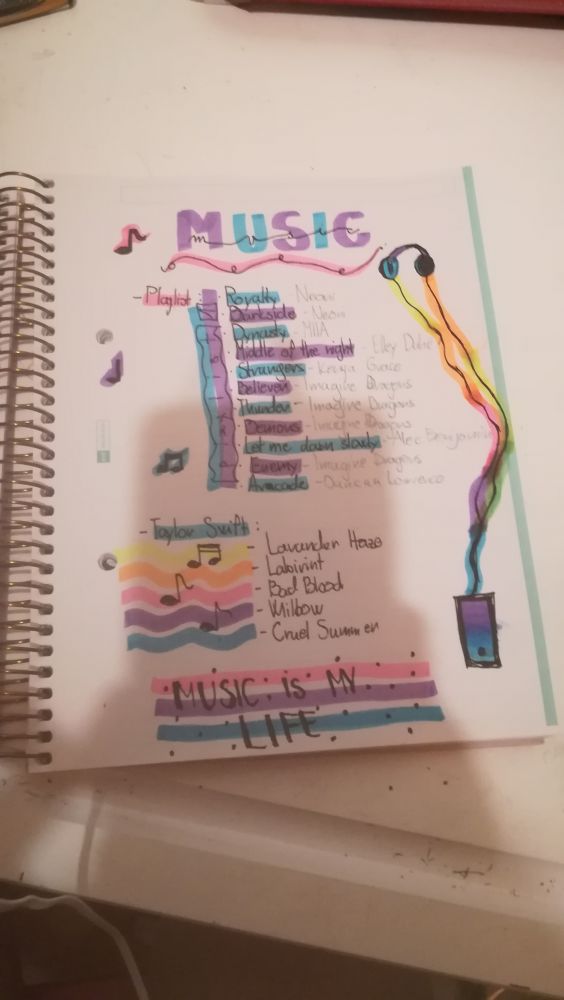 MUSIC
music
- Playlist:
· Royalty - Neoni
· Darkside - Neoni
· Dynasty - MIIA
· Middle of the night - Elley Duhe
· Strangers - Kenya Grace
· Believer - Imagine Dragons
· Thunder - Imagine Dragons
· Demons - Imagine Dragons
· Let me down slowly - Alec Benjamin
· Enemy - Imagine Dragons
· Avocade - Duncan Lawrence
- Taylor Swift:
- Lavander Haze
- Labirint
- Bad Blood
- Willow
- Cruel Summer
MUSIC IS MY
LIFE